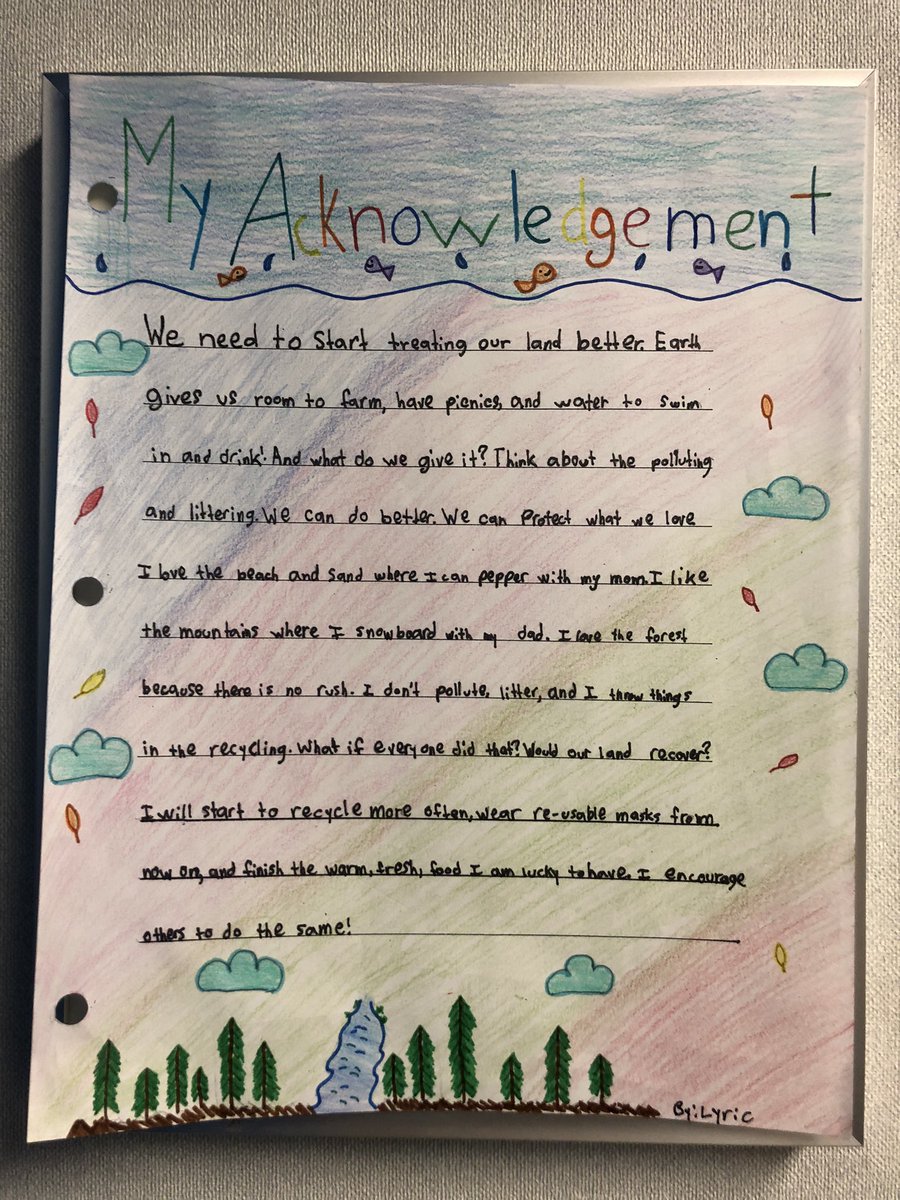 My Acknowledgement
We need to start treating our land better. Earth
gives us room to farm, have picnics, and water to swim
in and drink! And what do we give it? Think about the polluting
and littering. We can do better. We can Protect what we love
I love the beach and sand where I can pepper with my mom. I like
the mountains where I snowboard with my dad. I love the forest
because there is no rush. I don't pollute, litter, and I throw things
in the recycling. What if everyone did that? Would our land recover?
I will start to recycle more often, wear re-usable masks from
now on, and finish the warm, fresh, food I am lucky to have. I encourage
others to do the same!
By: Lyric